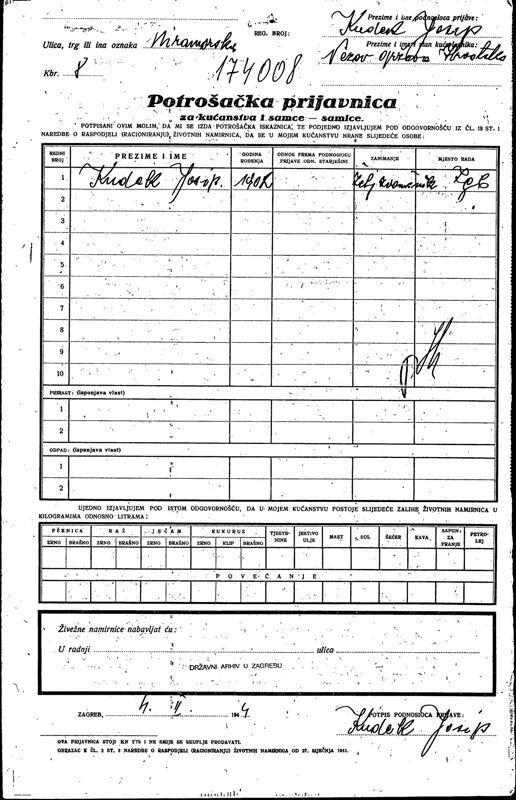 Prezime i ime podnosioca prijave:
Kudek Josip
REG. BROJ:
174008
Ulica, trg ili ina oznaka Miramarska
Prezime i ime stan kućevlasnika:
Nezav država Hrvatska
Kbr. 8
Potrošačka prijavnica
za kućanstva i samce — samice.
POTPISANI OVIM MOLIM, DA MI SE IZDA POTROŠAČKA ISKAZNICA, TE PODJEDNO IZJAVLJUJEM POD ODGOVORNOŠĆU IZ ČL. 18 ST. 1
NAREDBE O RASPODJELI (RACIONIRANJU) ŽIVOTNIH NAMIRNICA, DA SE U MOJEM KUĆANSTVU HRANE SLIJEDEĆE OSOBE:
REDNI BROJ PREZIME I IME GODINA ROĐENJA ODNOS PREMA PODNOSIOCU PRIJAVE ODN. STARJEŠINI ZANIMANJE MJESTO RADA
1 Kudek Josip. 1902 Zgb
2
3
4
5
6
7
8
9
10
PRIRAST: (ispunjava vlast)
1
2
ODPAD: (ispunjava vlast)
1
2
UJEDNO IZJAVLJUJEM POD ISTOM ODGOVORNOŠĆU, DA U MOJEM KUĆANSTVU POSTOJE SLIJEDEĆE ZALIHE ŽIVOTNIH NAMIRNICA U
KILOGRAMIMA ODNOSNO LITRAMA:
PŠENICA RAŽ JEČAM KUKURUZ TJESTENINE JESTIVO ULJE MAST SOL ŠEĆER KAVA SAPUN ZA PRANJE PETROLEJ
ZRNO BRAŠNO ZRNO BRAŠNO ZRNO BRAŠNO ZRNO KLIP BRAŠNO
POVEĆANJE
Živežne namirnice nabavljat ću:
U radnji ulica
DRŽAVNI ARHIV U ZAGREBU
ZAGREB, 4. II. 1944
POTPIS PODNOSIOCA PRIJAVE:
Kudek Josip
OVA PRIJAVNICA STOJI KN 0'75 I NE SMIJE SE SKUPLJE PRODAVATI.
OBRAZAC K ČL. 2 ST. 3 NAREDBE O RASPODJELI (RACIONIRANJU) ŽIVOTNIH NAMIRNICA OD 27. SIJEČNJA 1941.